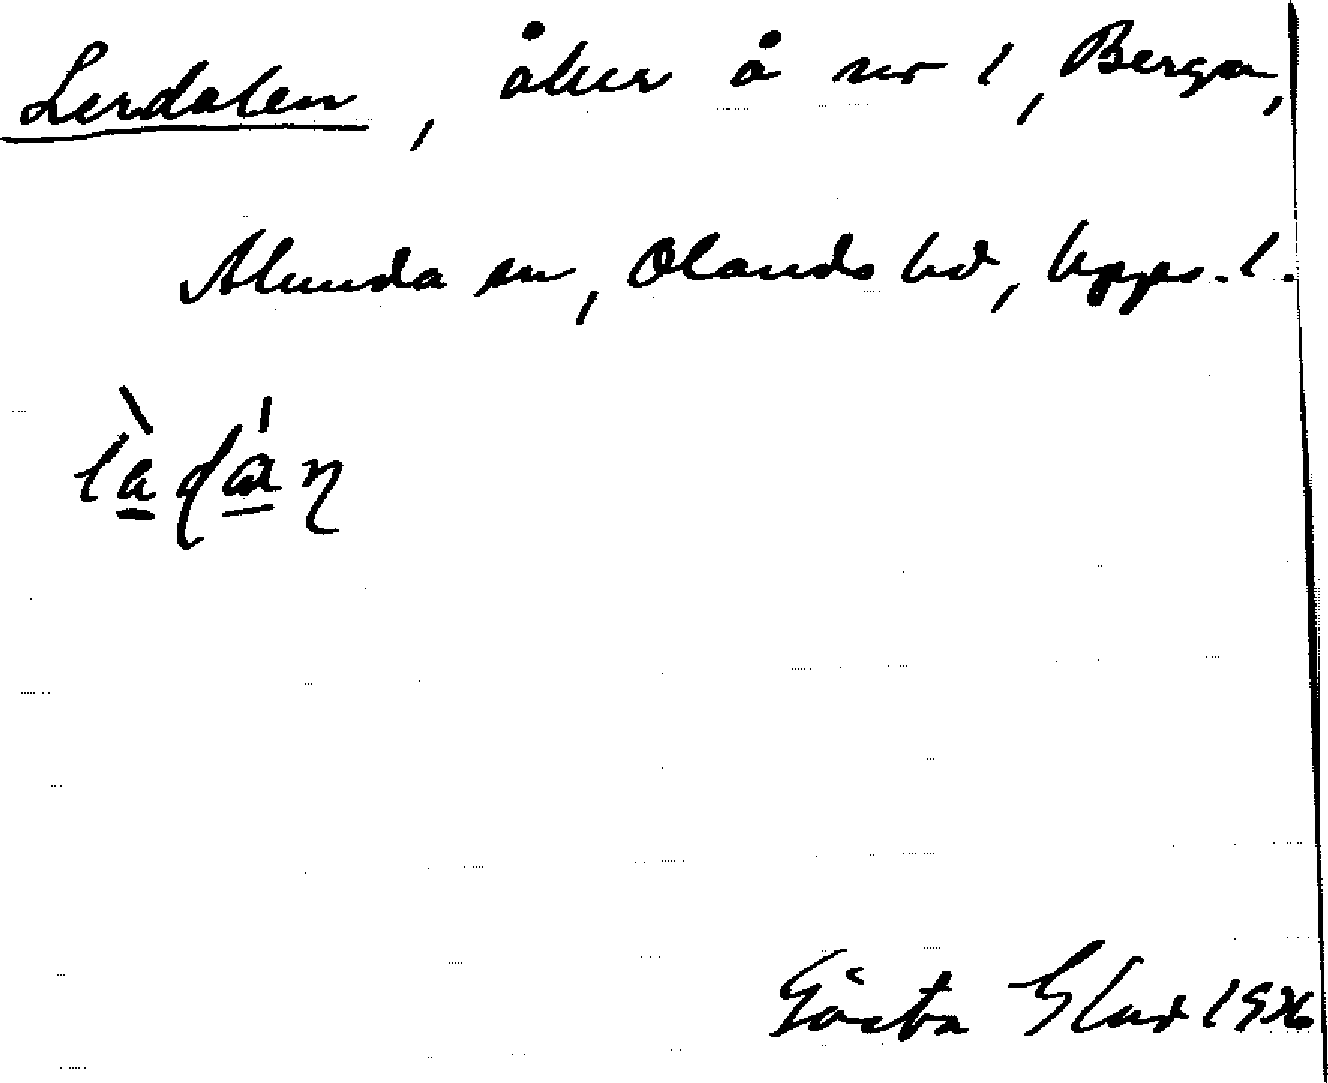 Lerdalen, åker å nr 1, Berga,
Alunda sn, Olands hd, Upps. l.
Gösta Glad 1936